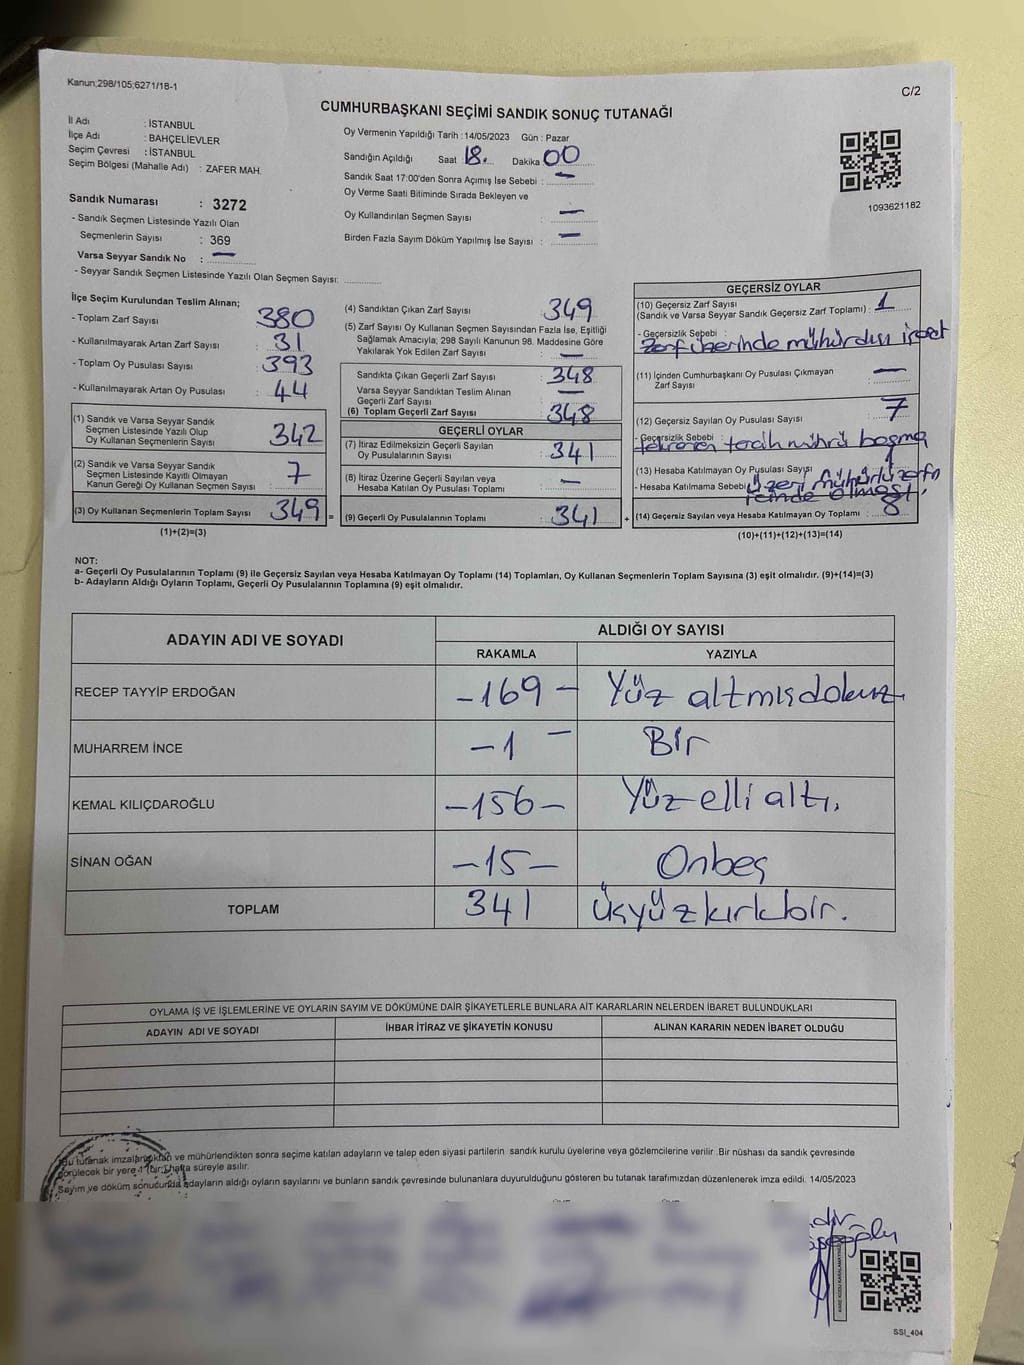 Kanun;298/105;6271/18-1
C/2
CUMHURBAŞKANI SEÇİMİ SANDIK SONUÇ TUTANAĞI
İl Adı : İSTANBUL
İlçe Adı : BAHÇELİEVLER
Seçim Çevresi : İSTANBUL
Seçim Bölgesi (Mahalle Adı) : ZAFER MAH.
Sandık Numarası : 3272
- Sandık Seçmen Listesinde Yazılı Olan
Seçmenlerin Sayısı : 369
Varsa Seyyar Sandık No : —
- Seyyar Sandık Seçmen Listesinde Yazılı Olan Seçmen Sayısı:
Oy Vermenin Yapıldığı Tarih :14/05/2023 Gün : Pazar
Sandığın Açıldığı Saat 18. Dakika 00
Sandık Saat 17:00'den Sonra Açımış İse Sebebi : —
Oy Verme Saati Bitiminde Sırada Bekleyen ve
Oy Kullandırılan Seçmen Sayısı : —
Birden Fazla Sayım Döküm Yapılmış İse Sayısı : —
1093621182
İlçe Seçim Kurulundan Teslim Alınan;
- Toplam Zarf Sayısı : 380
- Kullanılmayarak Artan Zarf Sayısı : 31
- Toplam Oy Pusulası Sayısı : 393
- Kullanılmayarak Artan Oy Pusulası : 44
(1) Sandık ve Varsa Seyyar Sandık
Seçmen Listesinde Yazılı Olup
Oy Kullanan Seçmenlerin Sayısı : 342
(2) Sandık ve Varsa Seyyar Sandık
Seçmen Listesinde Kayıtlı Olmayan
Kanun Gereği Oy Kullanan Seçmen Sayısı : 7
(3) Oy Kullanan Seçmenlerin Toplam Sayısı : 349 =
(1)+(2)=(3)
(4) Sandıktan Çıkan Zarf Sayısı : 349
(5) Zarf Sayısı Oy Kullanan Seçmen Sayısından Fazla İse, Eşitliği
Sağlamak Amacıyla; 298 Sayılı Kanunun 98. Maddesine Göre
Yakılarak Yok Edilen Zarf Sayısı : —
Sandıkta Çıkan Geçerli Zarf Sayısı : 348
Varsa Seyyar Sandıktan Teslim Alınan
Geçerli Zarf Sayısı : —
(6) Toplam Geçerli Zarf Sayısı : 348
GEÇERLİ OYLAR
(7) İtiraz Edilmeksizin Geçerli Sayılan
Oy Pusulalarının Sayısı : 341
(8) İtiraz Üzerine Geçerli Sayılan veya
Hesaba Katılan Oy Pusulaları Toplamı : —
(9) Geçerli Oy Pusulalarının Toplamı : 341 +
GEÇERSİZ OYLAR
(10) Geçersiz Zarf Sayısı
(Sandık ve Varsa Seyyar Sandık Geçersiz Zarf Toplamı) : 1
- Geçersizlik Sebebi :
Zarf üzerinde mühürdışı işaret
(11) İçinden Cumhurbaşkanı Oy Pusulası Çıkmayan
Zarf Sayısı : —
(12) Geçersiz Sayılan Oy Pusulası Sayısı : 7
- Geçersizlik Sebebi :
tekraren tercih mührü basma
(13) Hesaba Katılmayan Oy Pusulası Sayısı : 1
- Hesaba Katılmama Sebebi : Üzeri mühürlü zarfın
içinde olması.
(14) Geçersiz Sayılan veya Hesaba Katılmayan Oy Toplamı : 8
(10)+(11)+(12)+(13)=(14)
NOT:
a- Geçerli Oy Pusulalarının Toplamı (9) ile Geçersiz Sayılan veya Hesaba Katılmayan Oy Toplamı (14) Toplamları, Oy Kullanan Seçmenlerin Toplam Sayısına (3) eşit olmalıdır. (9)+(14)=(3)
b- Adayların Aldığı Oyların Toplamı, Geçerli Oy Pusulalarının Toplamına (9) eşit olmalıdır.
ADAYIN ADI VE SOYADI
ALDIĞI OY SAYISI
RAKAMLA YAZIYLA
RECEP TAYYİP ERDOĞAN -169- Yüz altmışdokuz
MUHARREM İNCE -1- Bir
KEMAL KILIÇDAROĞLU -156- Yüz elli altı.
SİNAN OĞAN -15- Onbeş
TOPLAM 341 üçyüzkırkbir.
OYLAMA İŞ VE İŞLEMLERİNE VE OYLARIN SAYIM VE DÖKÜMÜNE DAİR ŞİKAYETLERLE BUNLARA AİT KARARLARIN NELERDEN İBARET BULUNDUKLARI
ADAYIN ADI VE SOYADI İHBAR İTİRAZ VE ŞİKAYETİN KONUSU ALINAN KARARIN NEDEN İBARET OLDUĞU
Bu tutanak imzalandıktan ve mühürlendikten sonra seçime katılan adayların ve talep eden siyasi partilerin sandık kurulu üyelerine veya gözlemcilerine verilir .Bir nüshası da sandık çevresinde
görülecek bir yere 1 (bir) hafta süreyle asılır.
Sayım ve döküm sonucunda adayların aldığı oyların sayılarını ve bunların sandık çevresinde bulunanlara duyurulduğunu gösteren bu tutanak tarafımızdan düzenlenerek imza edildi. 14/05/2023
SSI_404